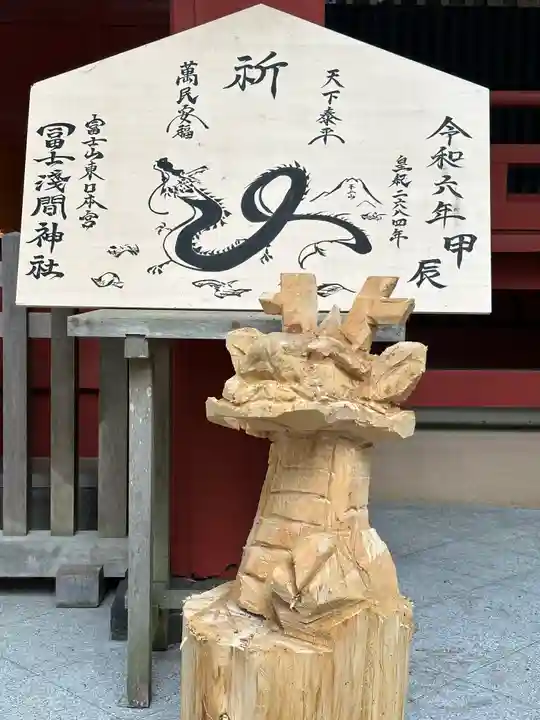 令和六年 甲辰
皇紀二六八四年
天下泰平
祈
萬民安福
富士山東口本宮
冨士淺間神社